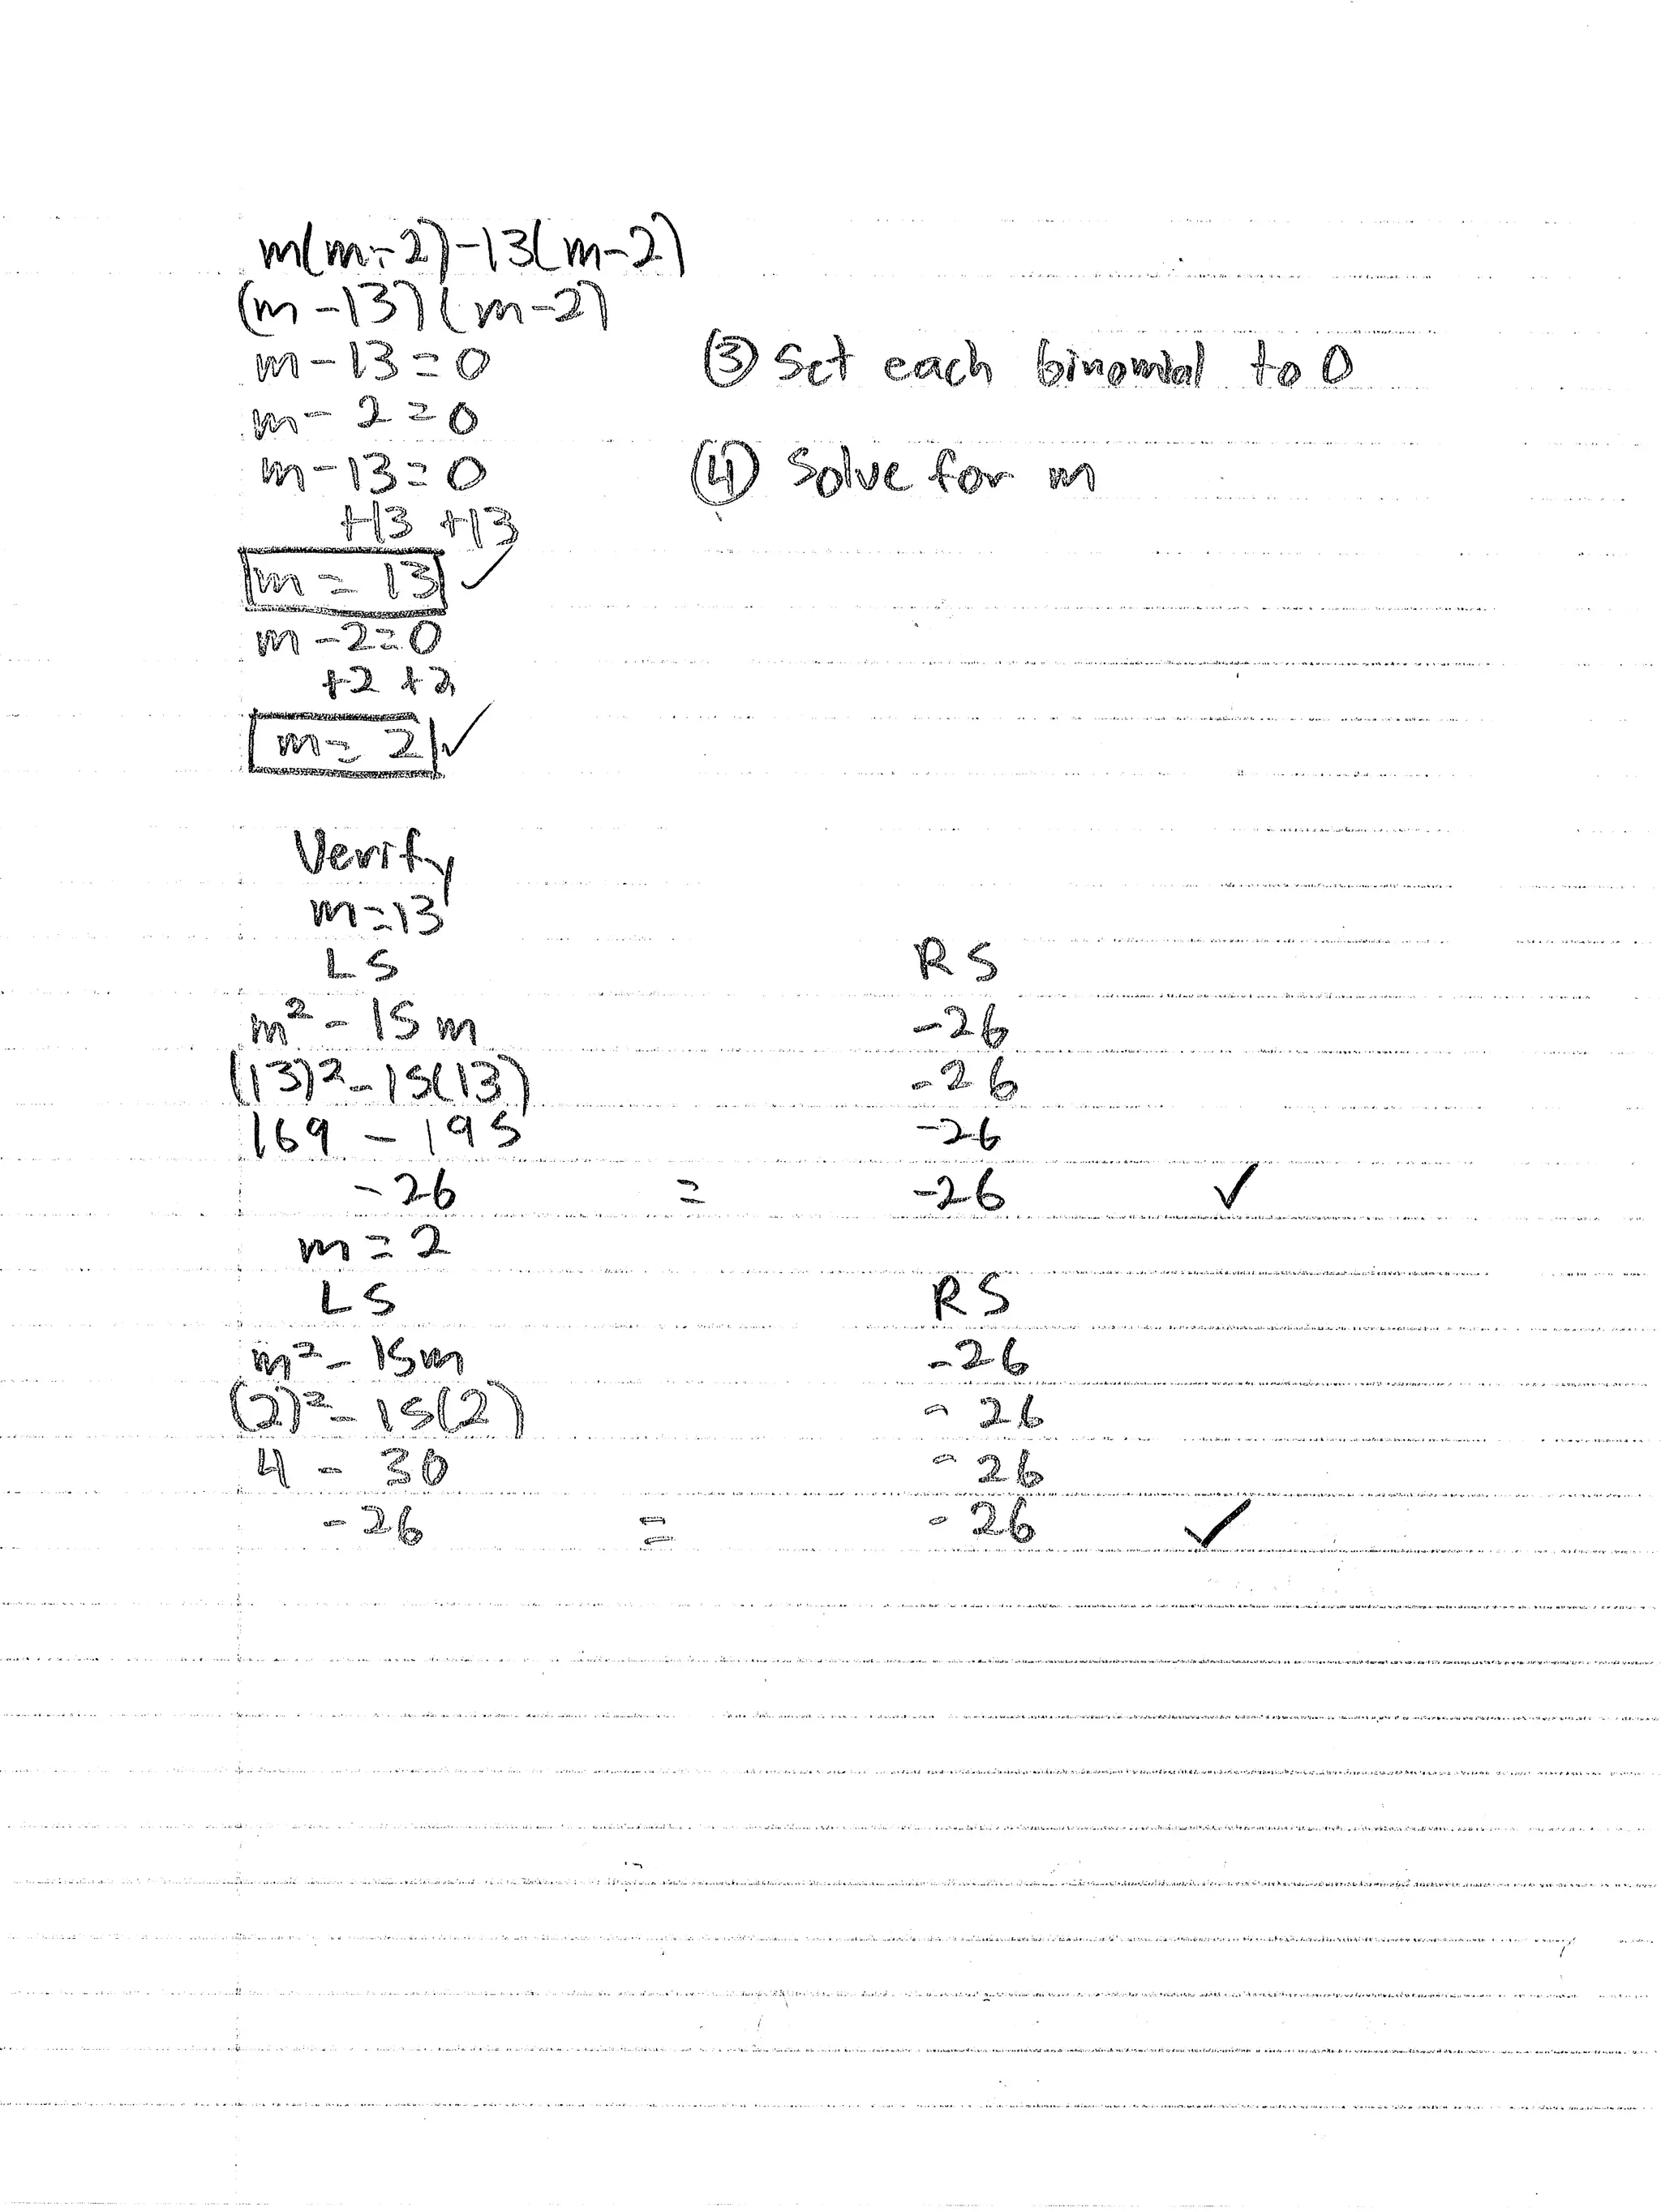 m(m-2)-13(m-2)
(m-13)(m-2)
m-13=0 ③ Set each binomial to 0
m-2=0
m-13=0 ④ Solve for m
+13 +13
m = 13 ✓
m-2=0
+2 +2
m= 2 ✓
Verify
m=13
LS RS
m²-15m -26
(13)²-15(13) -26
169 - 195 -26
-26 = -26 ✓
m=2
LS RS
m²-15m -26
(2)²-15(2) -26
4 - 30 -26
-26 = -26 ✓